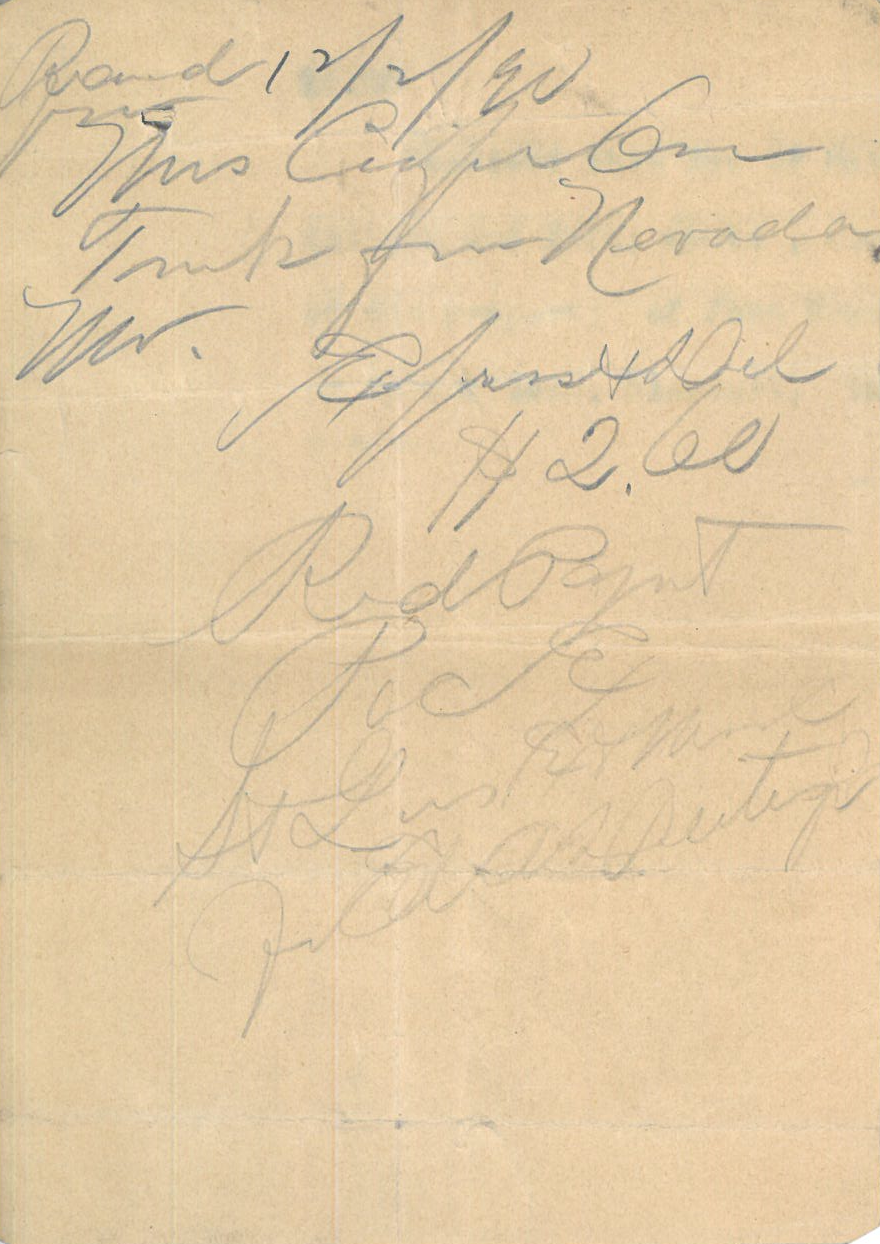 Recd 12/2/90
from
Mrs Cooper One
Trunk from Nevada
Mo.
Express & Del
$2.60
Recd Paymt
Pac Ex
St Louis
For